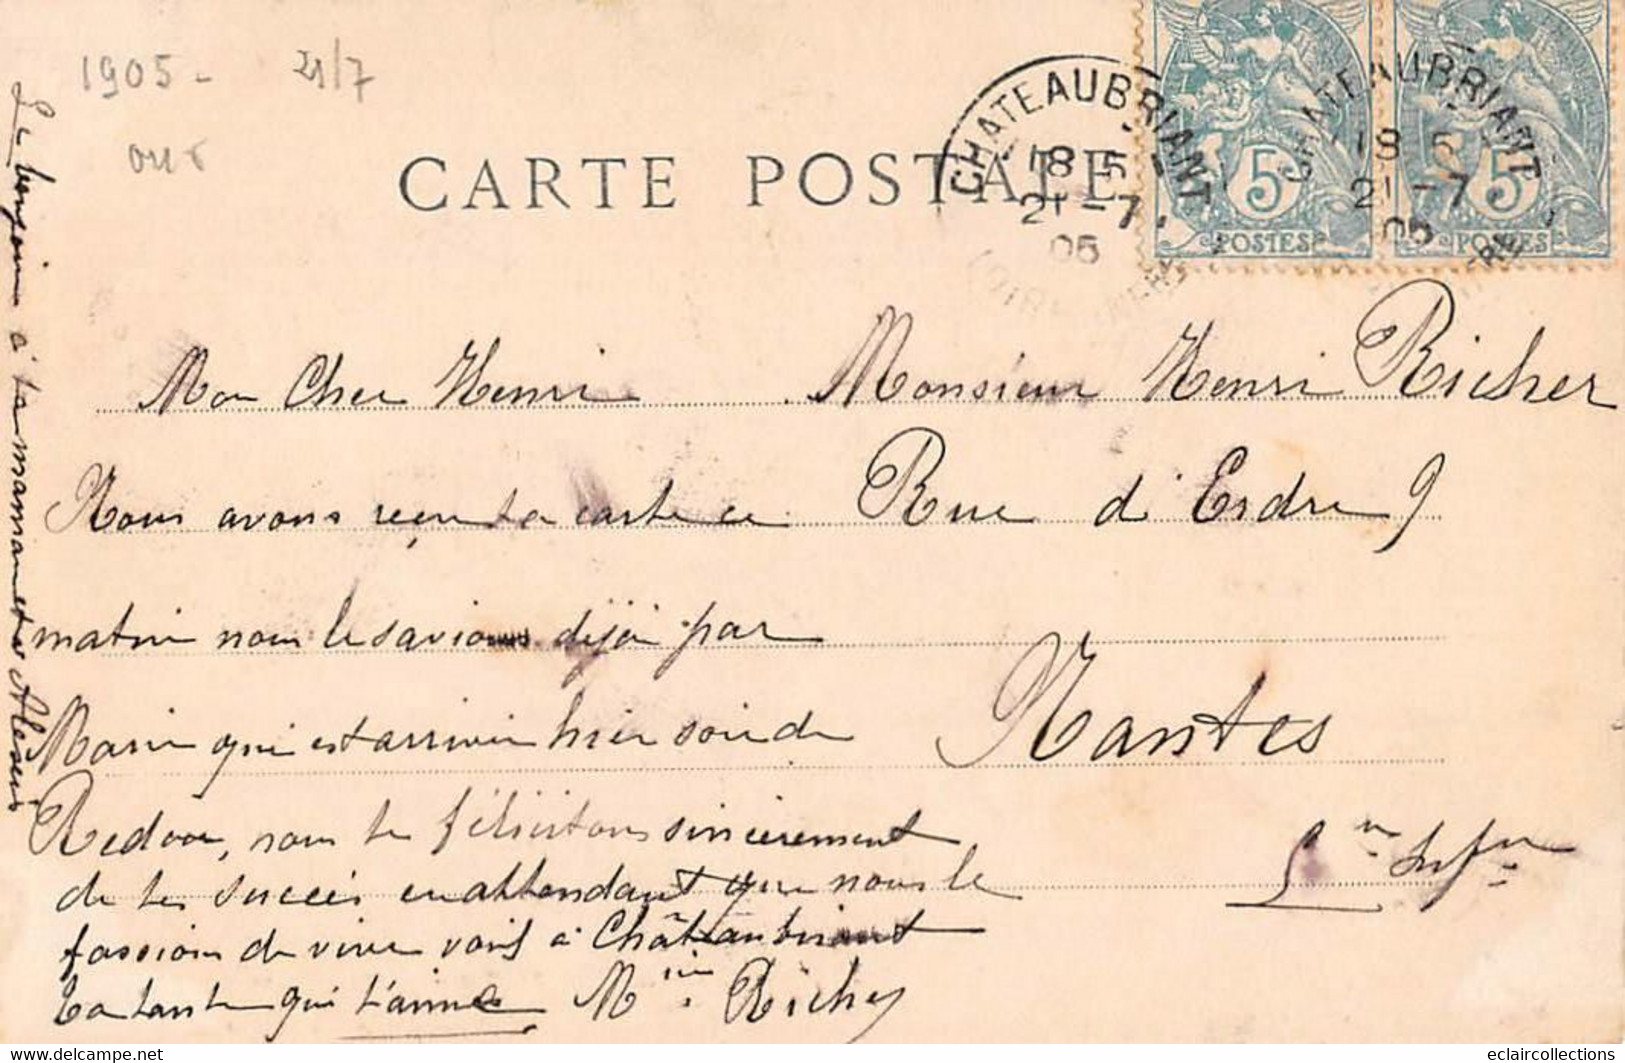 1905 - 21/7
CARTE POSTALE
CHATEAUBRIANT
18 5
21 -7
05
5
POSTES
CHATEAUBRIANT
18 5
21 -7
05
5
POSTES
Mon Cher Henri
Nous avons reçu ta carte ce
matin nous le savions déjà par
Marie qui est arrivée hier soir de
Redon, nous te félicitons sincèrement
de tes succès en attendant que nous le
fassions de vive voix à Châteaubriant
ta tante qui t'aime Mie Richer
Monsieur Henri Richer
Rue d'Erdre 9
Nantes
Lre Infre
Le bonjour à ta maman et à Alexis
eclaircollections